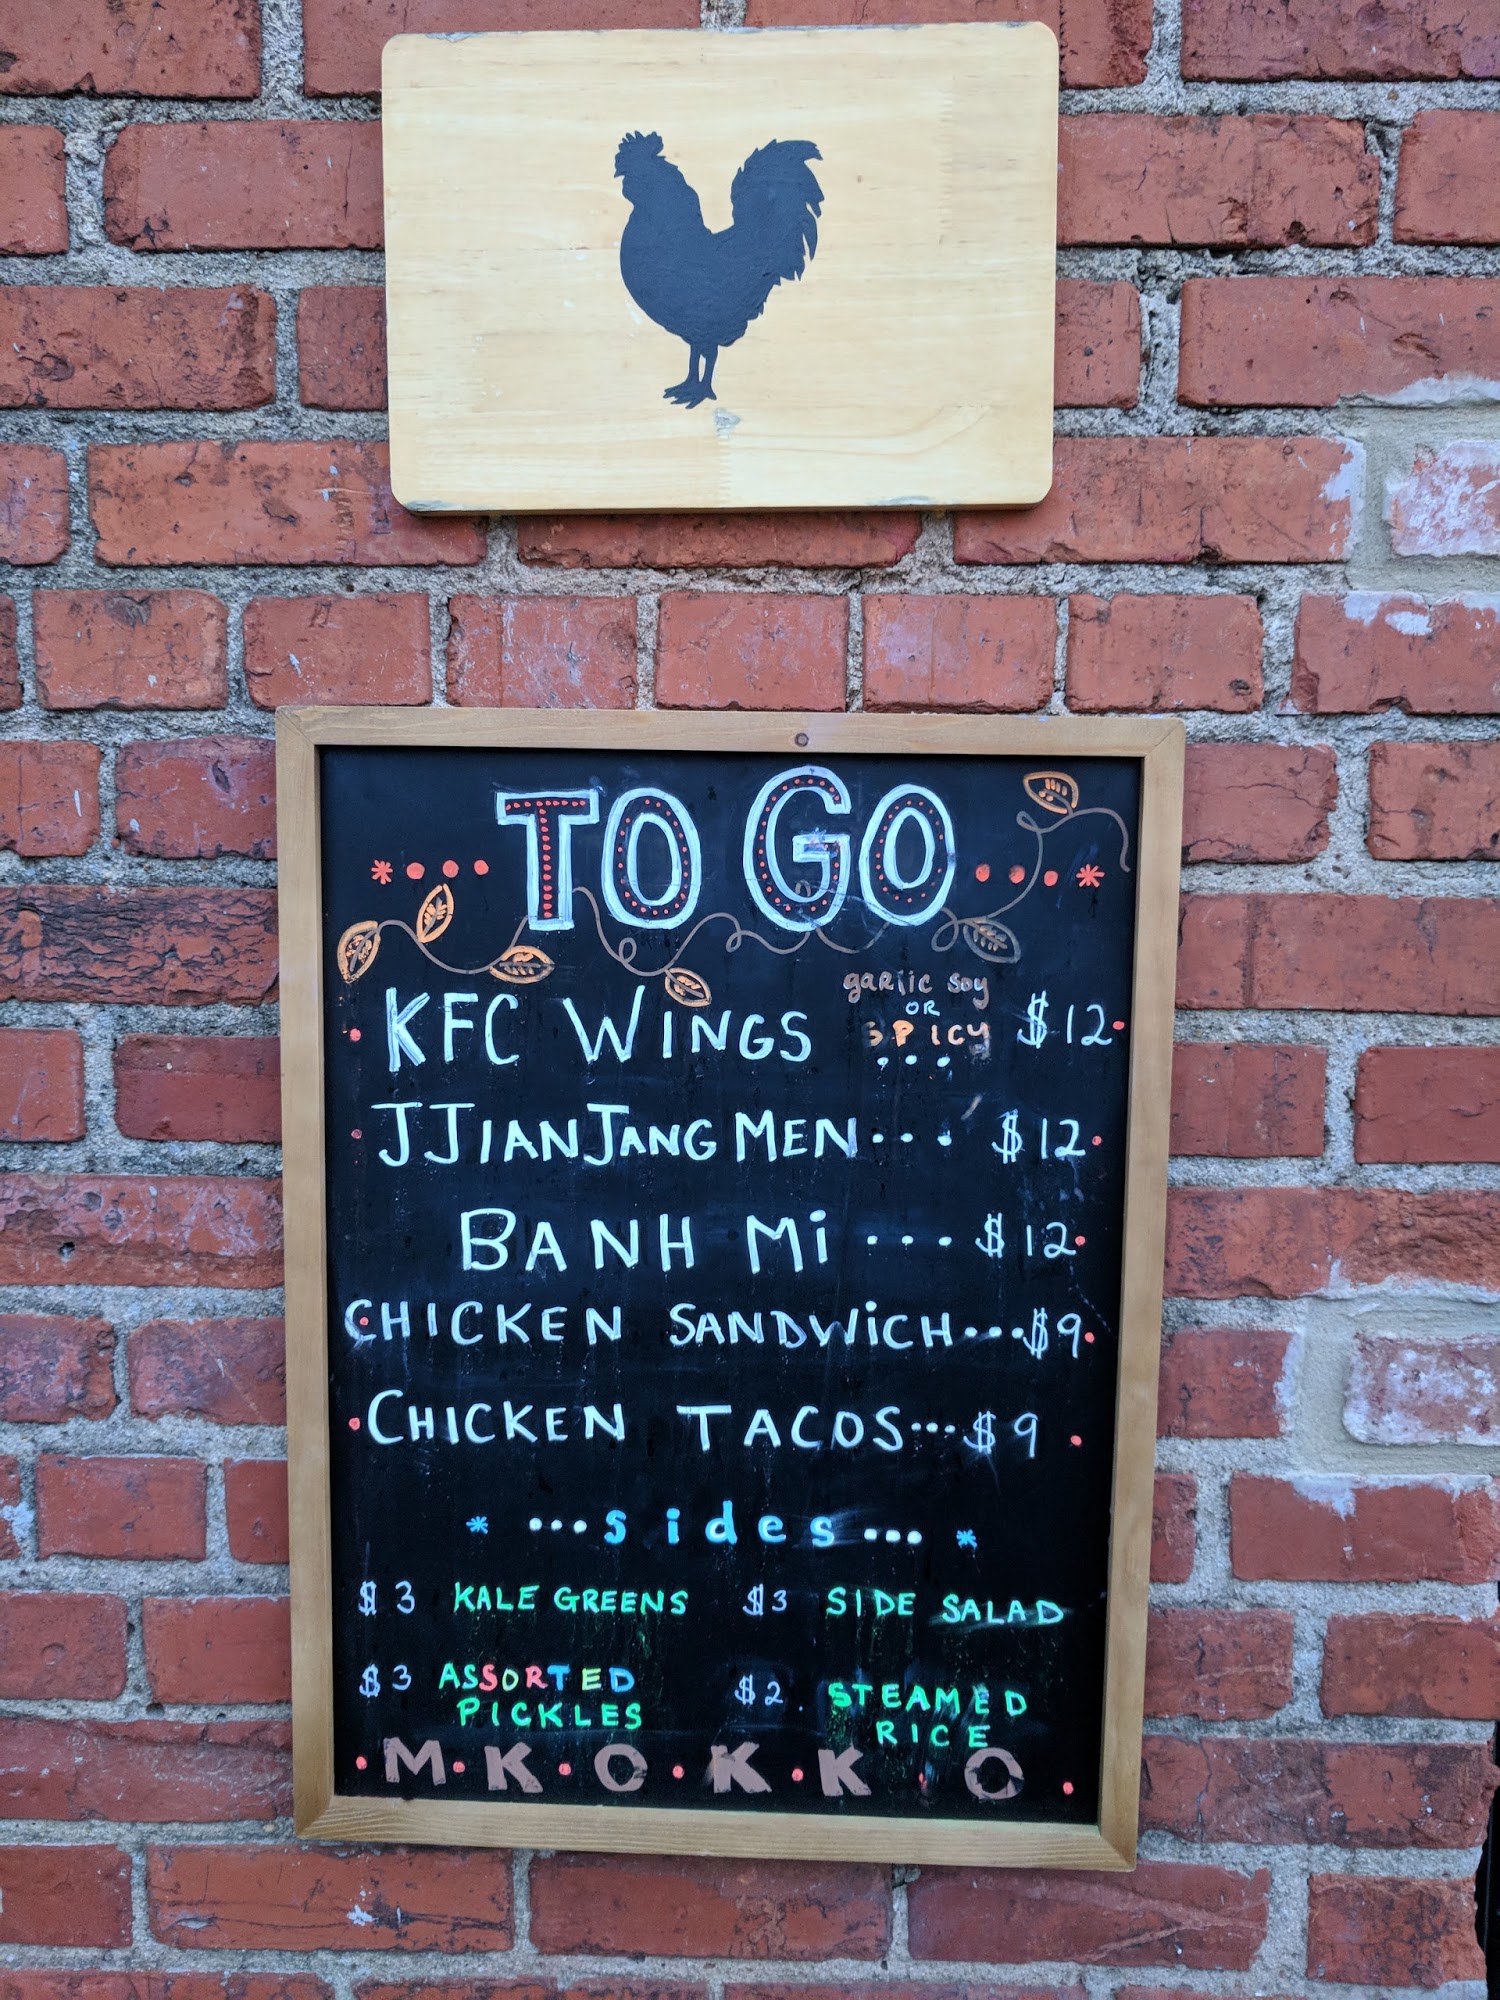 TO GO
KFC WINGS garlic soy OR SPICY $12
JJIANJANGMEN... $12
BANH Mi ... $12
CHICKEN SANDWiCH...$9
CHICKEN TACOS...$9
...sides...
$3 KALE GREENS $3 SIDE SALAD
$3 ASSORTED PICKLES $2. STEAMED RICE
M.K.O.K.K.O